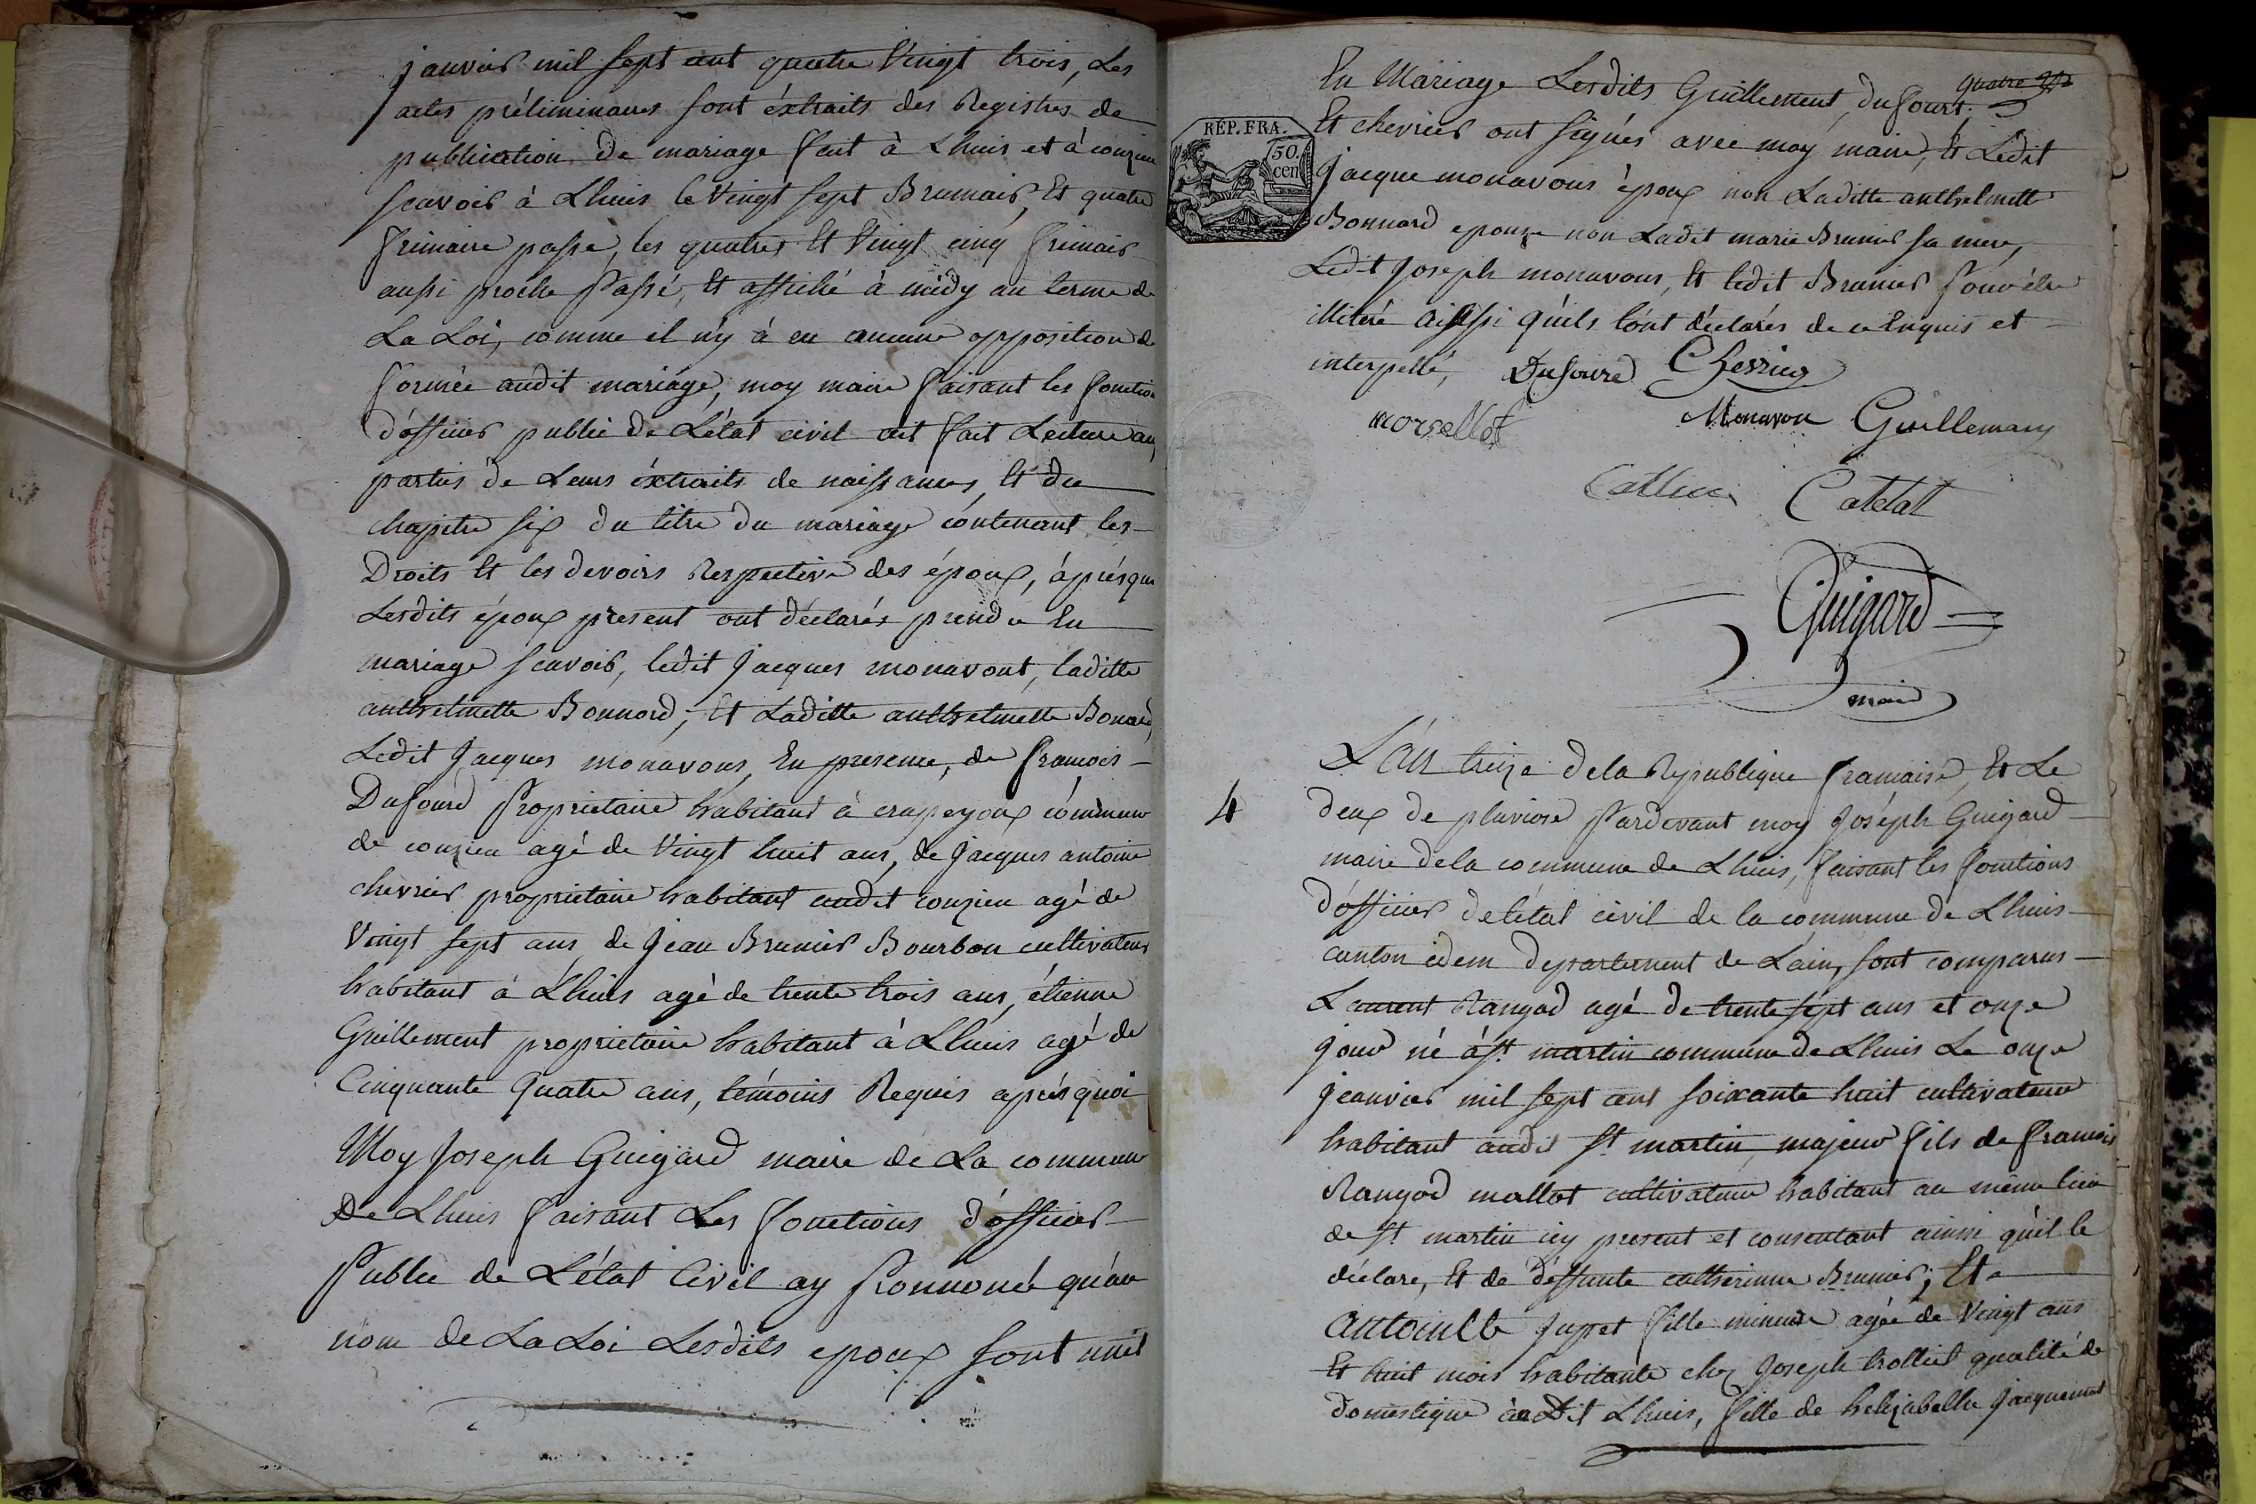 janvier mil sept cent quatre Vingt trois, Les
actes préliminaires sont éxtraits des Registres de
publication de mariage fait à Lhuis et à conzieu
scavoir à Lhuis le Vingt sept Brumair, Et quatre
frimaire passe, les quatres Et Vingt cinq frimair
aussi proche Passé, Et affiché à midy au terme de
La Loi, comme il n'y à eu aucune opposition de
formée audit mariage, moy maire faisant les fonction
d'officier public de L'état civil ait fait Lecture au
parties de Leurs éxtraits de naissances, Et du
chapitre six du titre du mariage contenant les
Droits Et les devoirs Respective des époux, àprés que
Lesdits époux present ont déclarés prendre En
mariage scavoir, ledit Jacques monavont, laditte
anthelmette Bonnard, Et Laditte anthelmette Bonard,
Ledit Jacques monavons, En presence, de françois
Dufourd Proprietaire habitant à crapeyoux commune
de conzieu agé de Vingt huit ans, de Jacques antoine
chevrier proprietaire habitant audit conzieu agé de
Vingt sept ans, de Jean Brunier Bourbon cultivateur
habitant à Lhuis agé de trente trois ans, étienne
Guillement proprietaire habitant à Lhuis agé de
Cinquante quatre ans, témoins Requis aprés quoi
Moy Joseph Guigard maire de La commune
De Lhuis faisant Les fonctions d'officier
Public de L'état Civil ay Prononcé qu'au
nom de La Loi Lesdits epoux sont unit
quatre
En Mariage Lesdits Guillement, dufourt,
Et chevrier ont signés avec moy maire, Et Ledit
Jacque monavons époux non Laditte anthelmette
Bonnard epouze non Ladit marie Brunier sa mere,
Ledit Joseph monavons, Et ledit Brunier Pour être
illiteré aissi qu'ils l'ont déclarés de ce Enquis et
interpellé,
RÉP. FRA.
50.
cen
Dufourd Chevrier
morsellet Monavon Guillemain
Catelat
Guigard
maire
4
L'an treize de la Republique francaise, Et Le
deux de pluviose Pardevant moy Joséph Guigard
maire dela commune de Lhuis, faisant les fonctions
d'officier de létat civil de la commune de Lhuis
canton idem departement de Lain, sont comparus
Laurent Rangod agé de trente sept ans et onze
jour né à St martin commune de Lhuis Le onze
jeanvier mil sept cent soixante huit cultivateur
habitant audit St martin, majeur fils de francois
Rangod mallot cultivateur habitant au même lieu
de St martin icy present et consentant ainsi qu'il le
déclare, Et de déffunte catherinne Brunier; Et
antoinette Jupet fille mineure agée de Vingt ans
Et huit mois habitante chez Joseph trolliet qualité de
domestique audit Lhuis, fille de helizabethe Jacquemet